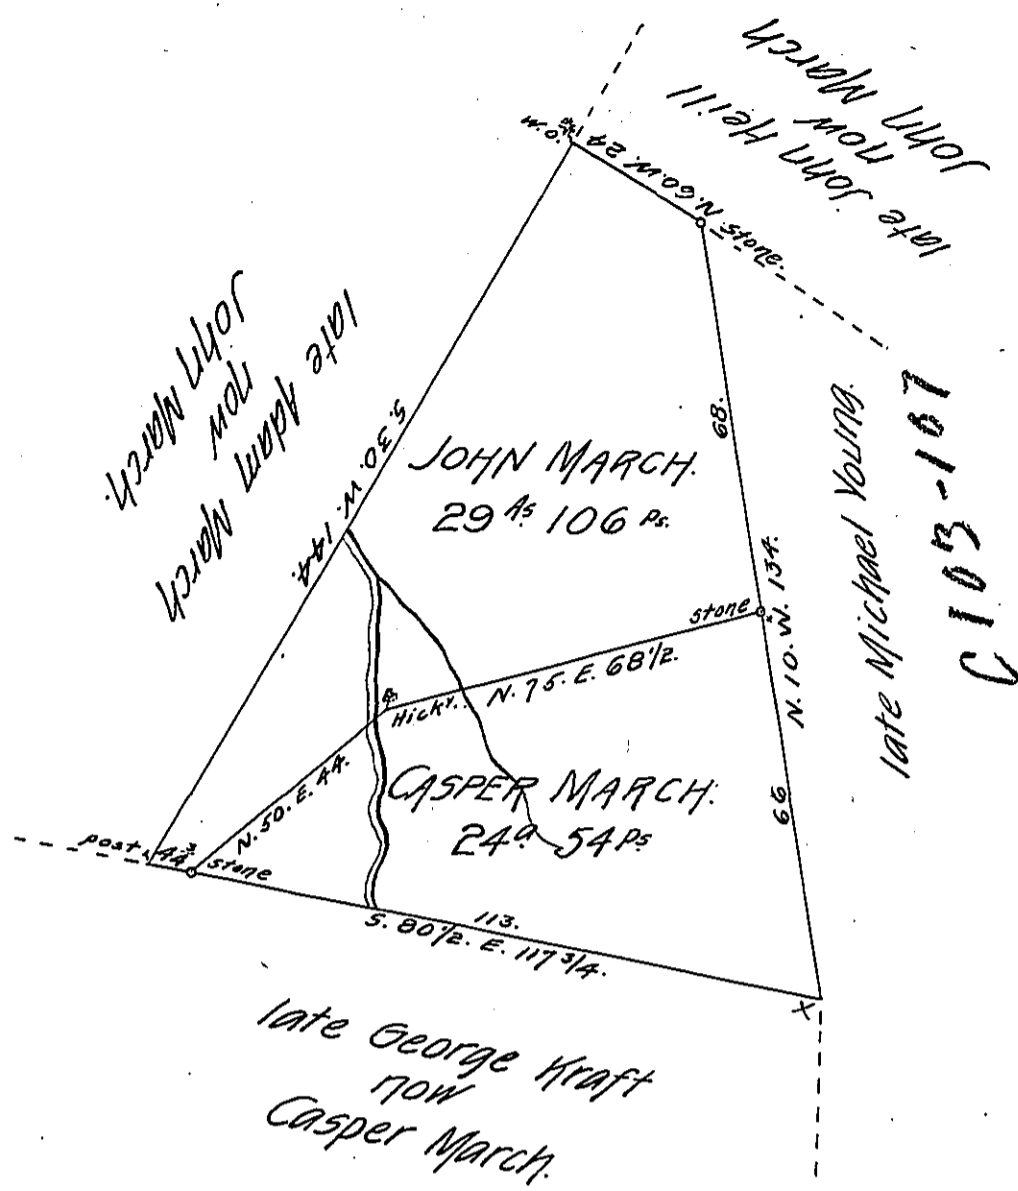 late John Heill
now
John March
W.O.
N. 60. W. 24
stone.
late Adam March
now
John March.
S. 30. W. 144.
JOHN MARCH.
29 As 106 Ps.
68.
late Michael Young.
C 103-187
stone
N. 10. W. 134.
N. 75. E. 68 1/2.
Hicky.
N. 50. E. 44.
CASPER MARCH.
24 a 54 Ps
66
post
4 3/4
stone
113.
S. 80 1/2. E. 117 3/4.
X
late George Kraft
now
Casper March.